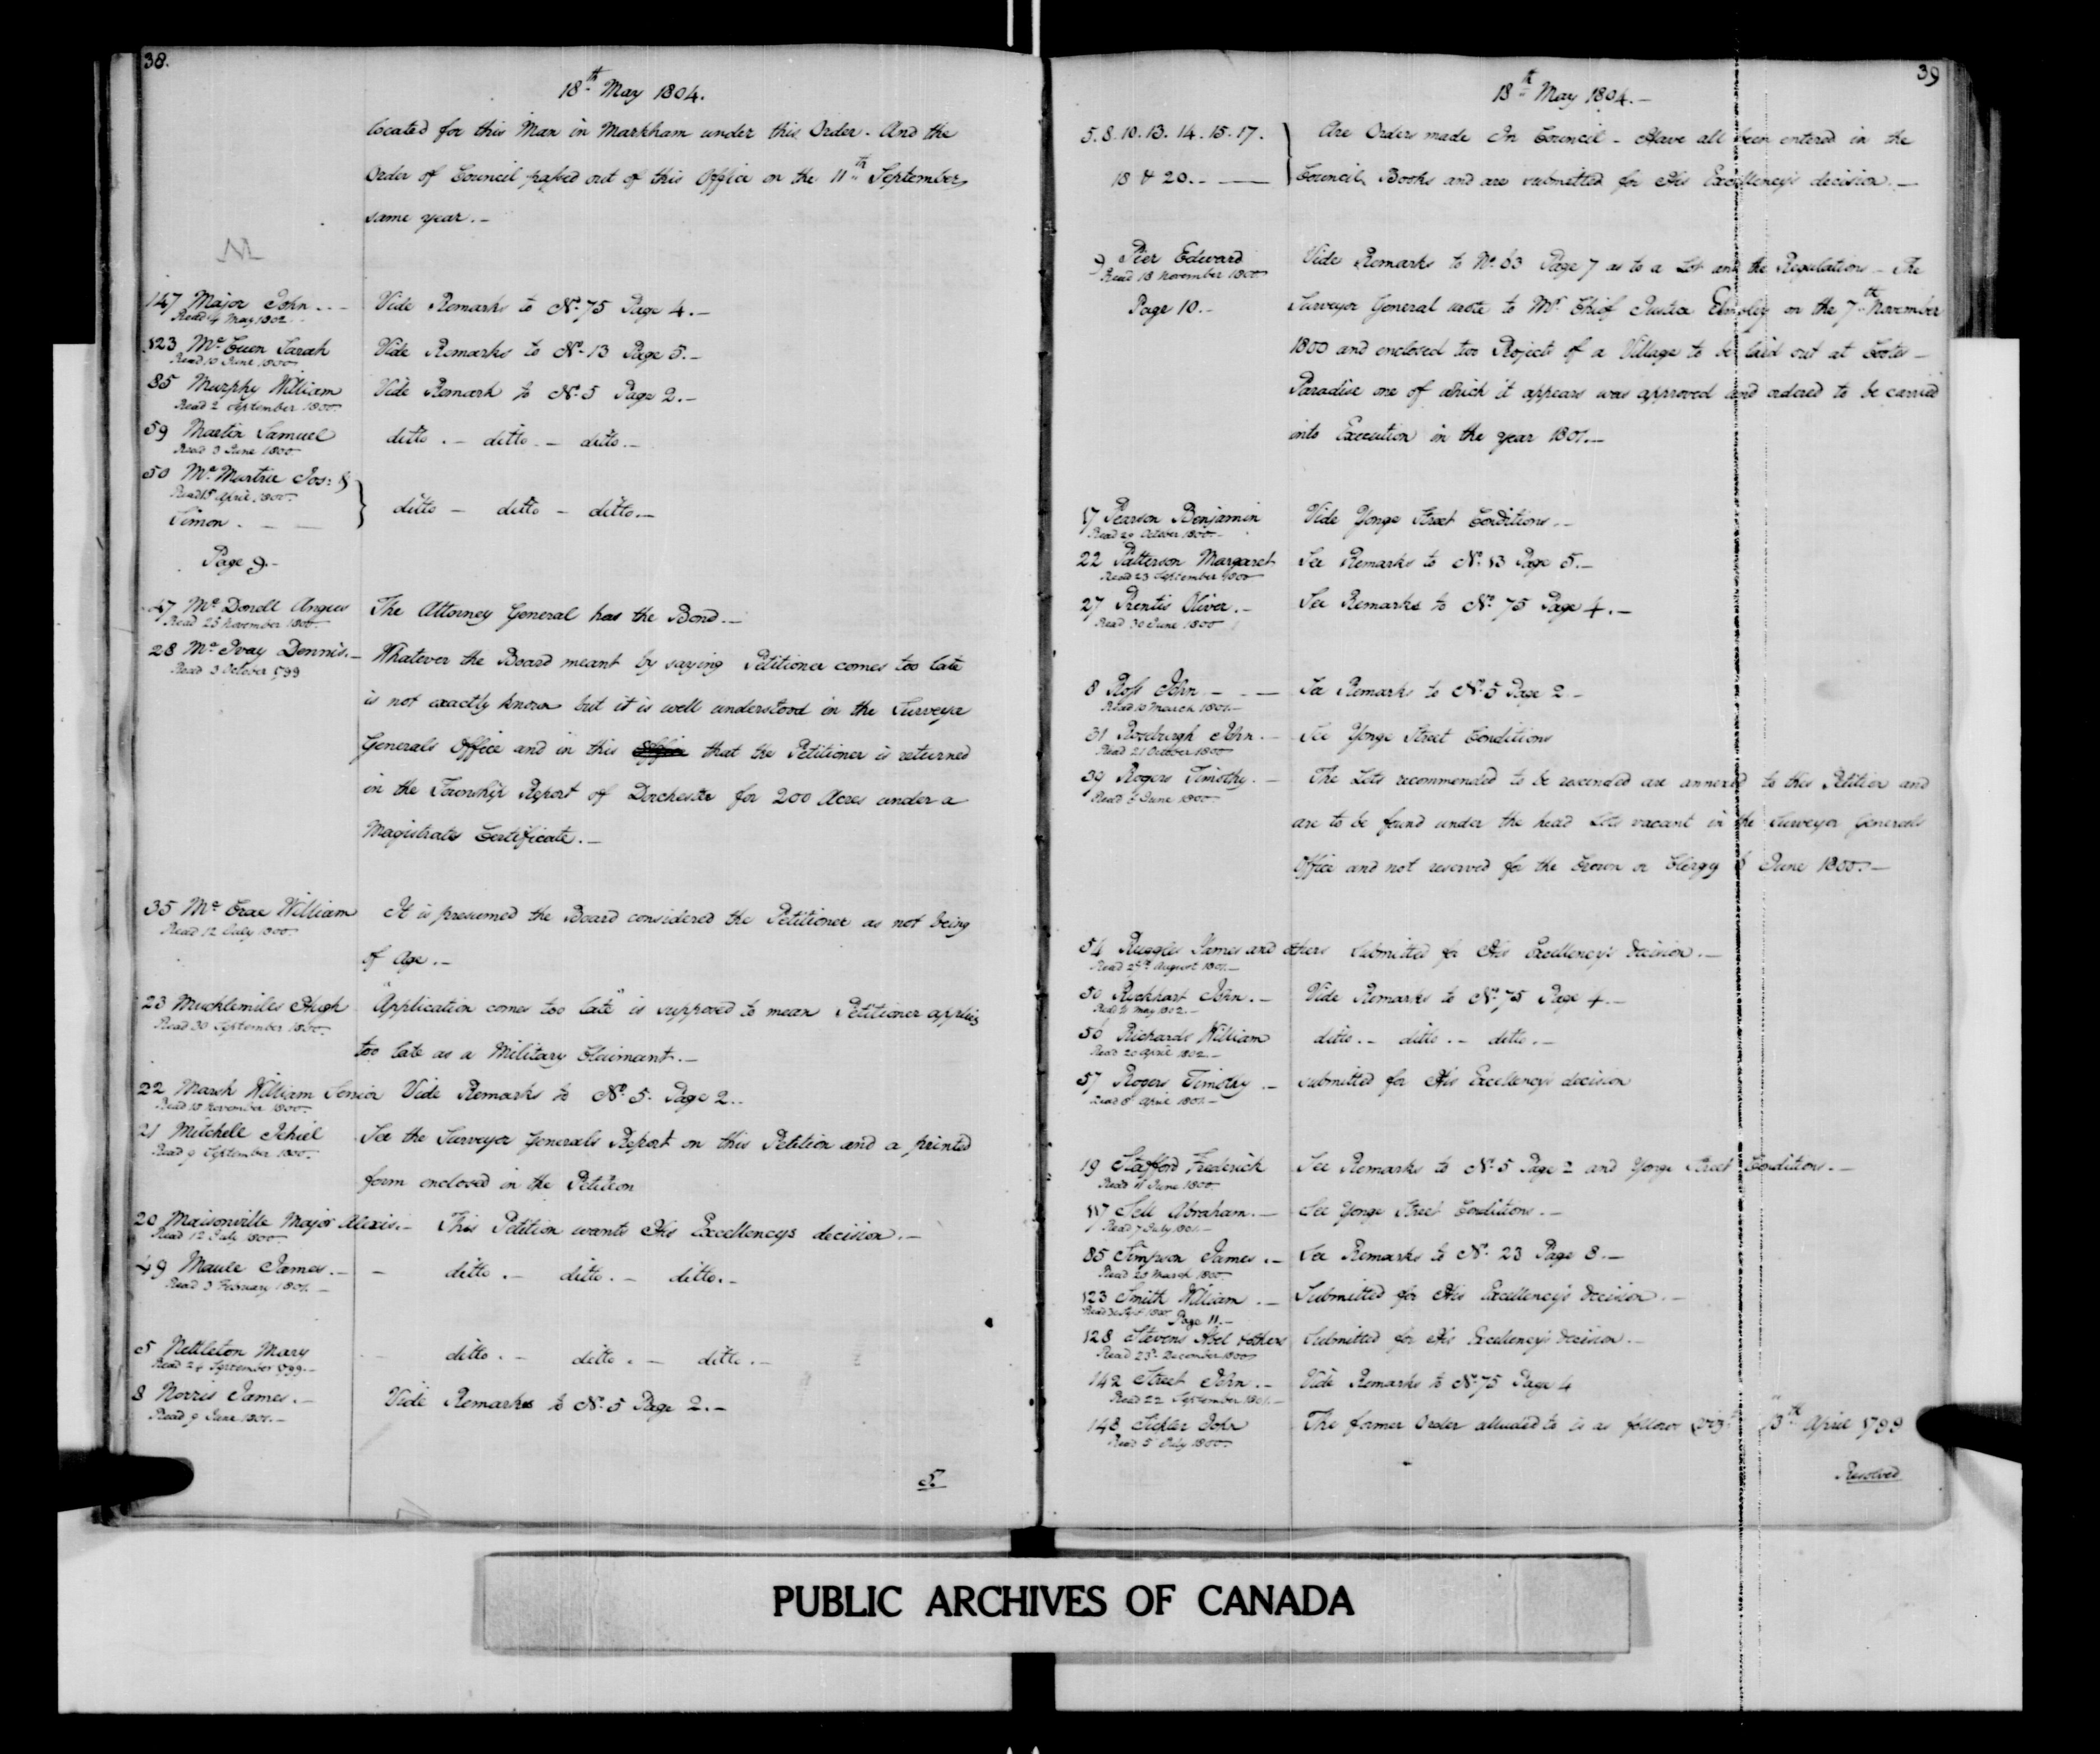 38.
18th May 1804.
located for this Man in Markham under this Order. And the
Order of Council passed out of this Office on the 11th September
same year. -
147 Major John. - Vide Remarks to No. 75 Page 4. -
Read 4 May 1802
123 Mc Cuen Sarah Vide Remarks to No. 13 Page 5. -
Read 10 June 1800
85 Murphy William Vide Remark to No. 5 Page 2. -
Read 2 September 1800
59 Martin Samuel ditto. - ditto - ditto. -
Read 3 June 1800
50 Mc Martrie Jos: &
Read 15 April 1800
Simon . - - ditto - ditto - ditto. -
Page 9. -
47 Mc Donell Angus The Attorney General has the Bond. -
Read 25 November 1800
28 Mc Ivay Dennis. - Whatever the Board meant by saying Petitioner comes too late
Read 3 October 1799
is not exactly known but it is well understood in the Surveyor
Generals Office and in this Office that the Petitioner is returned
in the Township Report of Dorchester for 200 Acres under a
Magistrates Certificate. -
35 Mc Crae William It is presumed the Board considered the Petitioner as not being
Read 12 July 1800
of Age. -
23 Mucklemiles Hugh "Application comes too late" is supposed to mean Petitioner applies
Read 30 September 1800
too late as a Military Claimant. -
22 Marsh William Senior Vide Remarks to No. 5. Page 2..
Read 18 November 1800
21 Mitchell Jehiel See the Surveyor Generals Report on this Petition and a printed
Read 9 September 1800
form enclosed in the Petition
20 Maisonville Major Alexis. - This Petition wants His Excellencys decision. -
Read 12 July 1800
49 Maule James. - - ditto. - ditto. - ditto. -
Read 3 February 1801. -
5 Nettleton Mary ditto. - ditto. - ditto. -
Read 24 September 1799. -
8 Norris James. - Vide Remarks to No. 5 Page 2. -
Read 9 June 1801. -
5.
39
18th May 1804. -
5. 8. 10. 13. 14. 15. 17. Are Orders made In Council - Have all been entered in the
18 & 20. - - Council Books and are submitted for His Excellency's decision. -
9 Pier Edward Vide Remarks to No. 63 Page 7 as to a Lot and the Regulations - The
Read 18 November 1800
Page 10. - Surveyor General wrote to Mr. Chief Justice Elmsley on the 7th November
1800 and enclosed two Projects of a Village to be laid out at Cootes -
Paradise one of which it appears was approved and ordered to be carried
into Execution in the year 1801. -
17 Pearson Benjamin Vide Yonge Street Conditions. -
Read 29 October 1800
22 Patterson Margaret See Remarks to No. 13 Page 5. -
Read 23 September 1800
27 Prentis Oliver. - See Remarks to No. 75 Page 4. -
Read 30 June 1800
8 Ross John - - - See Remarks to No. 5 Page 2 -
Read 10 March 1801. -
31 Roxburgh John. - See Yonge Street Conditions
Read 21 October 1800
39 Rogers Timothy. - The Lots recommended to be rescended are annexed to this Petition and
Read 6 June 1800
are to be found under the head Lots vacant in the Surveyor Generals
Office and not reserved for the Crown or Clergy 6 June 1800. -
54 Ruggles James and others Submitted for His Excellency's decision. -
Read August 1801. -
50 Ruckhart John. - Vide Remarks to No. 75 Page 4. -
Read May 1802. -
56 Richards William ditto. - ditto. - ditto. -
Read 20 April 1802. -
57 Rogers Timothy. - submitted for His Excellency's decision
Read 8 April 1801. -
19 Stafford Frederick See Remarks to No. 5 Page 2 and Yonge Street Conditions. -
Read 11 June 1800
117 Sell Abraham. - See Yonge Street Conditions. -
Read 7 July 1801. -
85 Simpson James. - See Remarks to No. 23 Page 8. -
Read 25 March 1800
123 Smith William. - Submitted for His Excellency's decision. -
Page 11. -
128 Stevens Abel & others Submitted for His Excellency's decision. -
Read 23d December 1800
142 Street John. - Vide Remarks to No. 75 Page 4
Read 22 September 1801. -
148 Sickler John The former Order alluded to is as follows (vizt. "13th April 1799
Read 5 July 1800
Resolved
PUBLIC ARCHIVES OF CANADA